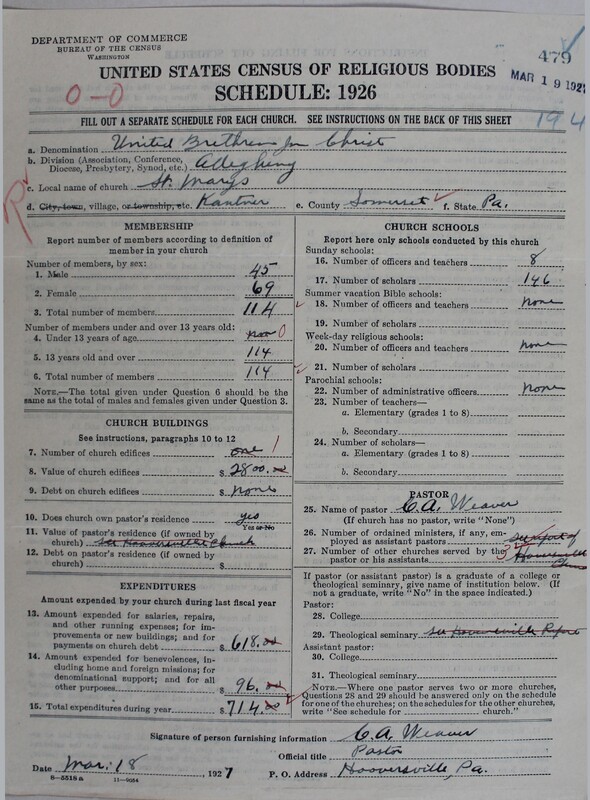 DEPARTMENT OF COMMERCE
BUREAU OF THE CENSUS
WASHINGTON
479
MAR 19 192
UNITED STATES CENSUS OF RELIGIOUS BODIES
SCHEDULE: 1926
0-0
194
FILL OUT A SEPARATE SCHEDULE FOR EACH CHURCH. SEE INSTRUCTIONS ON THE BACK OF THIS SHEET
a. Denomination United Brethren in Christ
b. Division (Association, Conference, Diocese, Presbytery, Synod, etc.) Allegheny
c. Local name of church St. Marys
d. City, town, village, or township, etc. Kantner e. County Somerset f. State Pa.
MEMBERSHIP
Report number of members according to definition of
member in your church
Number of members, by sex:
1. Male 45
2. Female 69
3. Total number of members 114
Number of members under and over 13 years old:
4. Under 13 years of age none 0
5. 13 years old and over 114
6. Total number of members 114
NOTE.—The total given under Question 6 should be the
same as the total of males and females given under Question 3.
CHURCH BUILDINGS
See instructions, paragraphs 10 to 12
7. Number of church edifices one 1
8. Value of church edifices $ 2800.00
9. Debt on church edifices $ none
10. Does church own pastor's residence yes
Yes or No
11. Value of pastor's residence (if owned by
church) see Hooversville Church
12. Debt on pastor's residence (if owned by
church) $
EXPENDITURES
Amount expended by your church during last fiscal year
13. Amount expended for salaries, repairs,
and other running expenses; for im-
provements or new buildings; and for
payments on church debt $ 618.00
14. Amount expended for benevolences, in-
cluding home and foreign missions; for
denominational support; and for all
other purposes $ 96.00
15. Total expenditures during year $ 714.00
CHURCH SCHOOLS
Report here only schools conducted by this church
Sunday schools:
16. Number of officers and teachers 8
17. Number of scholars 146
Summer vacation Bible schools:
18. Number of officers and teachers none
19. Number of scholars
Week-day religious schools:
20. Number of officers and teachers none
21. Number of scholars
Parochial schools:
22. Number of administrative officers none
23. Number of teachers—
a. Elementary (grades 1 to 8)
b. Secondary
24. Number of scholars—
a. Elementary (grades 1 to 8)
b. Secondary
PASTOR
25. Name of pastor C. A. Weaver
(If church has no pastor, write "None")
26. Number of ordained ministers, if any, em-
ployed as assistant pastors see report of
27. Number of other churches served by the
pastor or his assistants 3 Hooversville
If pastor (or assistant pastor) is a graduate of a college or
theological seminary, give name of institution below. (If
not a graduate, write "No" in the space indicated.)
Pastor:
28. College
29. Theological seminary see Hooversville Report
Assistant pastor:
30. College
31. Theological seminary
NOTE.—Where one pastor serves two or more churches,
Questions 28 and 29 should be answered only on the schedule
for one of the churches; on the schedules for the other churches,
write "See schedule for church."
Signature of person furnishing information C. A. Weaver
Official title Pastor
Date Mar. 18, 1927 P. O. Address Hooversville, Pa.
8—5518a 11—9054